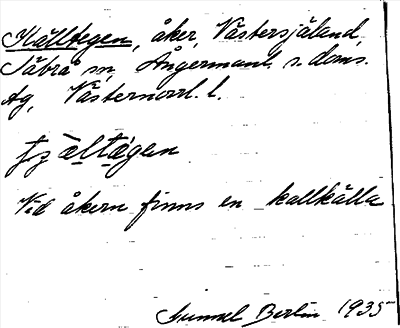 Källtegen, åker, Västersjäland
Säbrå sn, Ångermanl. s. doms.
ag, Västernorrl. l.
tzæltægen
Vid åkern finns en kallkälla
Gunnel Berlin 1935